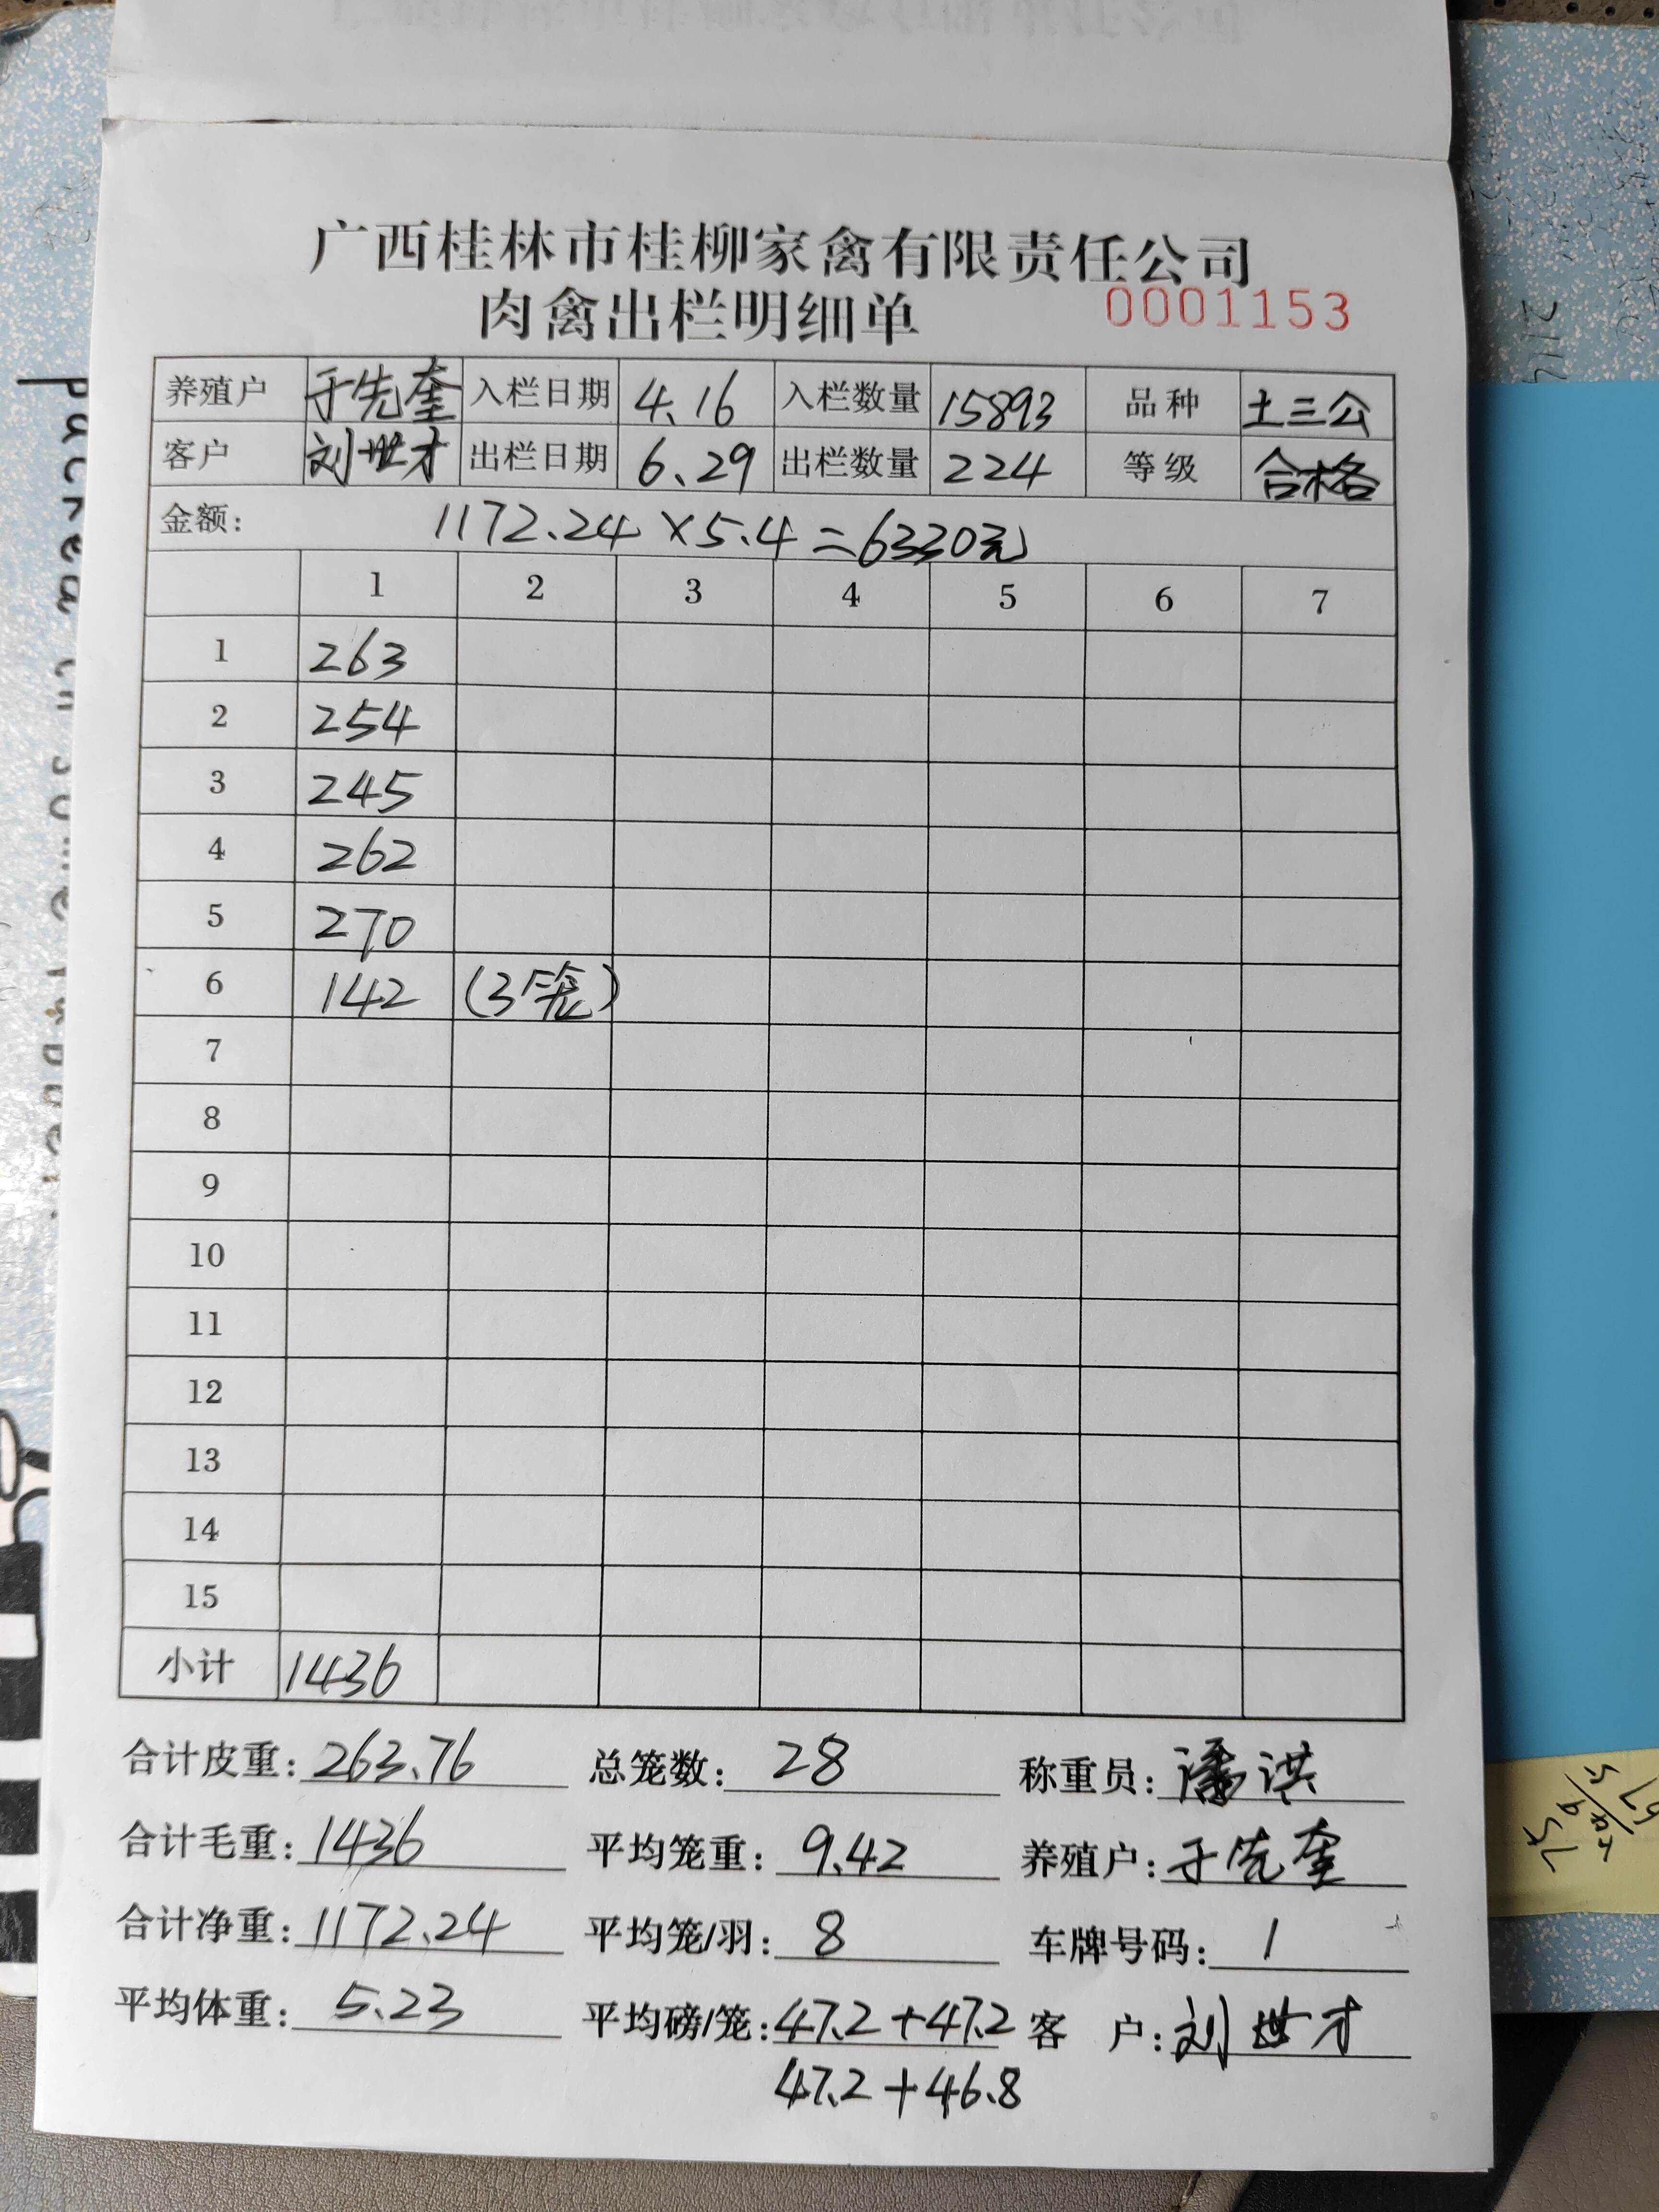 广西桂林市桂柳家禽有限责任公司
肉禽出栏明细单 0001153
养殖户 于先奎 入栏日期 4.16 入栏数量 15893 品种 土三公
客户 刘世才 出栏日期 6.29 出栏数量 224 等级 合格
金额: 1172.24×5.4=6330元
1 2 3 4 5 6 7
1 263
2 254
3 245
4 262
5 270
6 142 (3笼)
7
8
9
10
11
12
13
14
15
小计 1436
合计皮重: 263.76 总笼数: 28 称重员: 潘洪
合计毛重: 1436 平均笼重: 9.42 养殖户: 于先奎
合计净重: 1172.24 平均笼/羽: 8 车牌号码: 1
平均体重: 5.23 平均磅/笼: 47.2+47.2 客 户: 刘世才
47.2+46.8